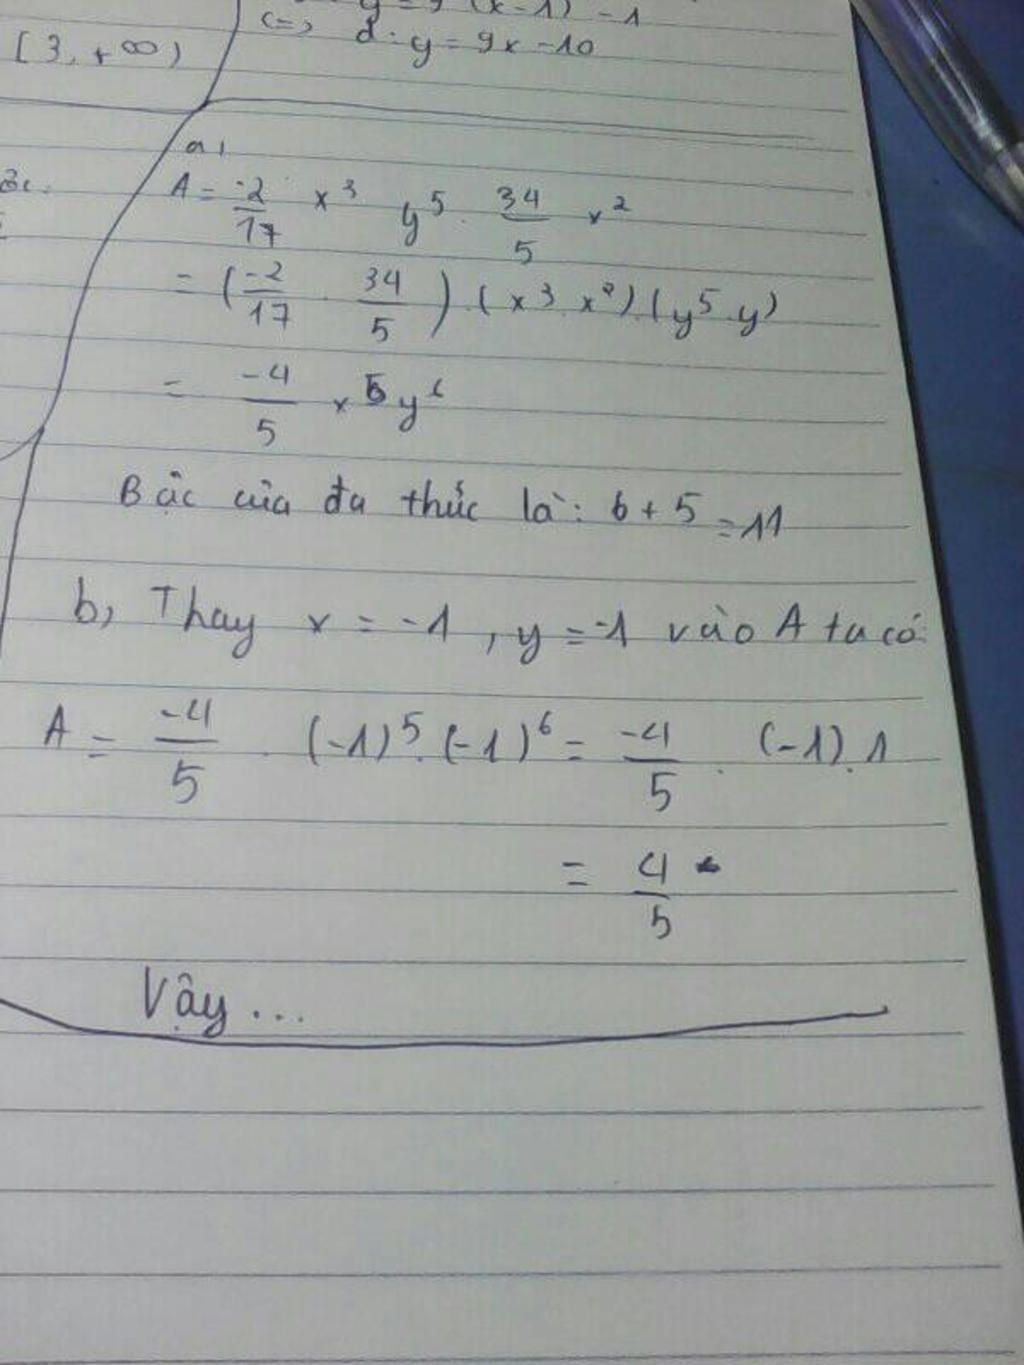 y = 9 (x-1) - 1
[3, +∞)
<=> d: y = 9x - 10
a,
A = -2/17 x^3 y^5 . 34/5 x^2
= (-2/17 . 34/5) . (x^3 . x^2) (y^5 . y)
= -4/5 x^5 y^6
Bậc của đa thức là: 6 + 5 = 11
b, Thay x = -1, y = -1 vào A ta có:
A = -4/5 . (-1)^5 . (-1)^6 = -4/5 . (-1) . 1
= 4/5
Vậy ...